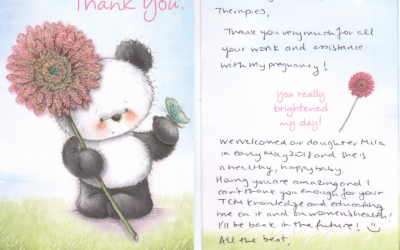 Thank You!
Therapies,
Thank you very much for all
your work and assistance
with my pregnancy!
you really
brightened
my day!
We welcomed our daughter Mila
in early May 2018 and she is
a healthy, happy baby.
you are amazing and I
can't thank you enough for your
TCM knowledge and educating
me on it and on women's health!
I'll be back in the future!
All the best,